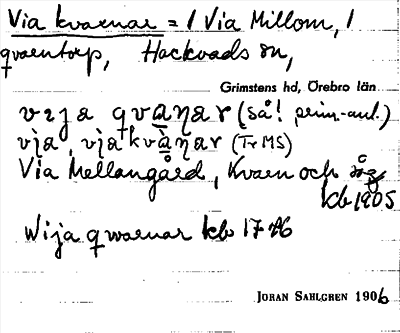 Via kvarnar = / Via Millom, /
qvarntorp, Hackvads sn,
Grimstens hd, Örebro län
vɩja qvaṇar (så! prim.-aul.)
vja, vjakvàṇar (Tr MS)
Via Mellangård, Kvarn och såg
kb 1905
Wija qwarnar kb 1746
JÖRAN SAHLGREN 1906